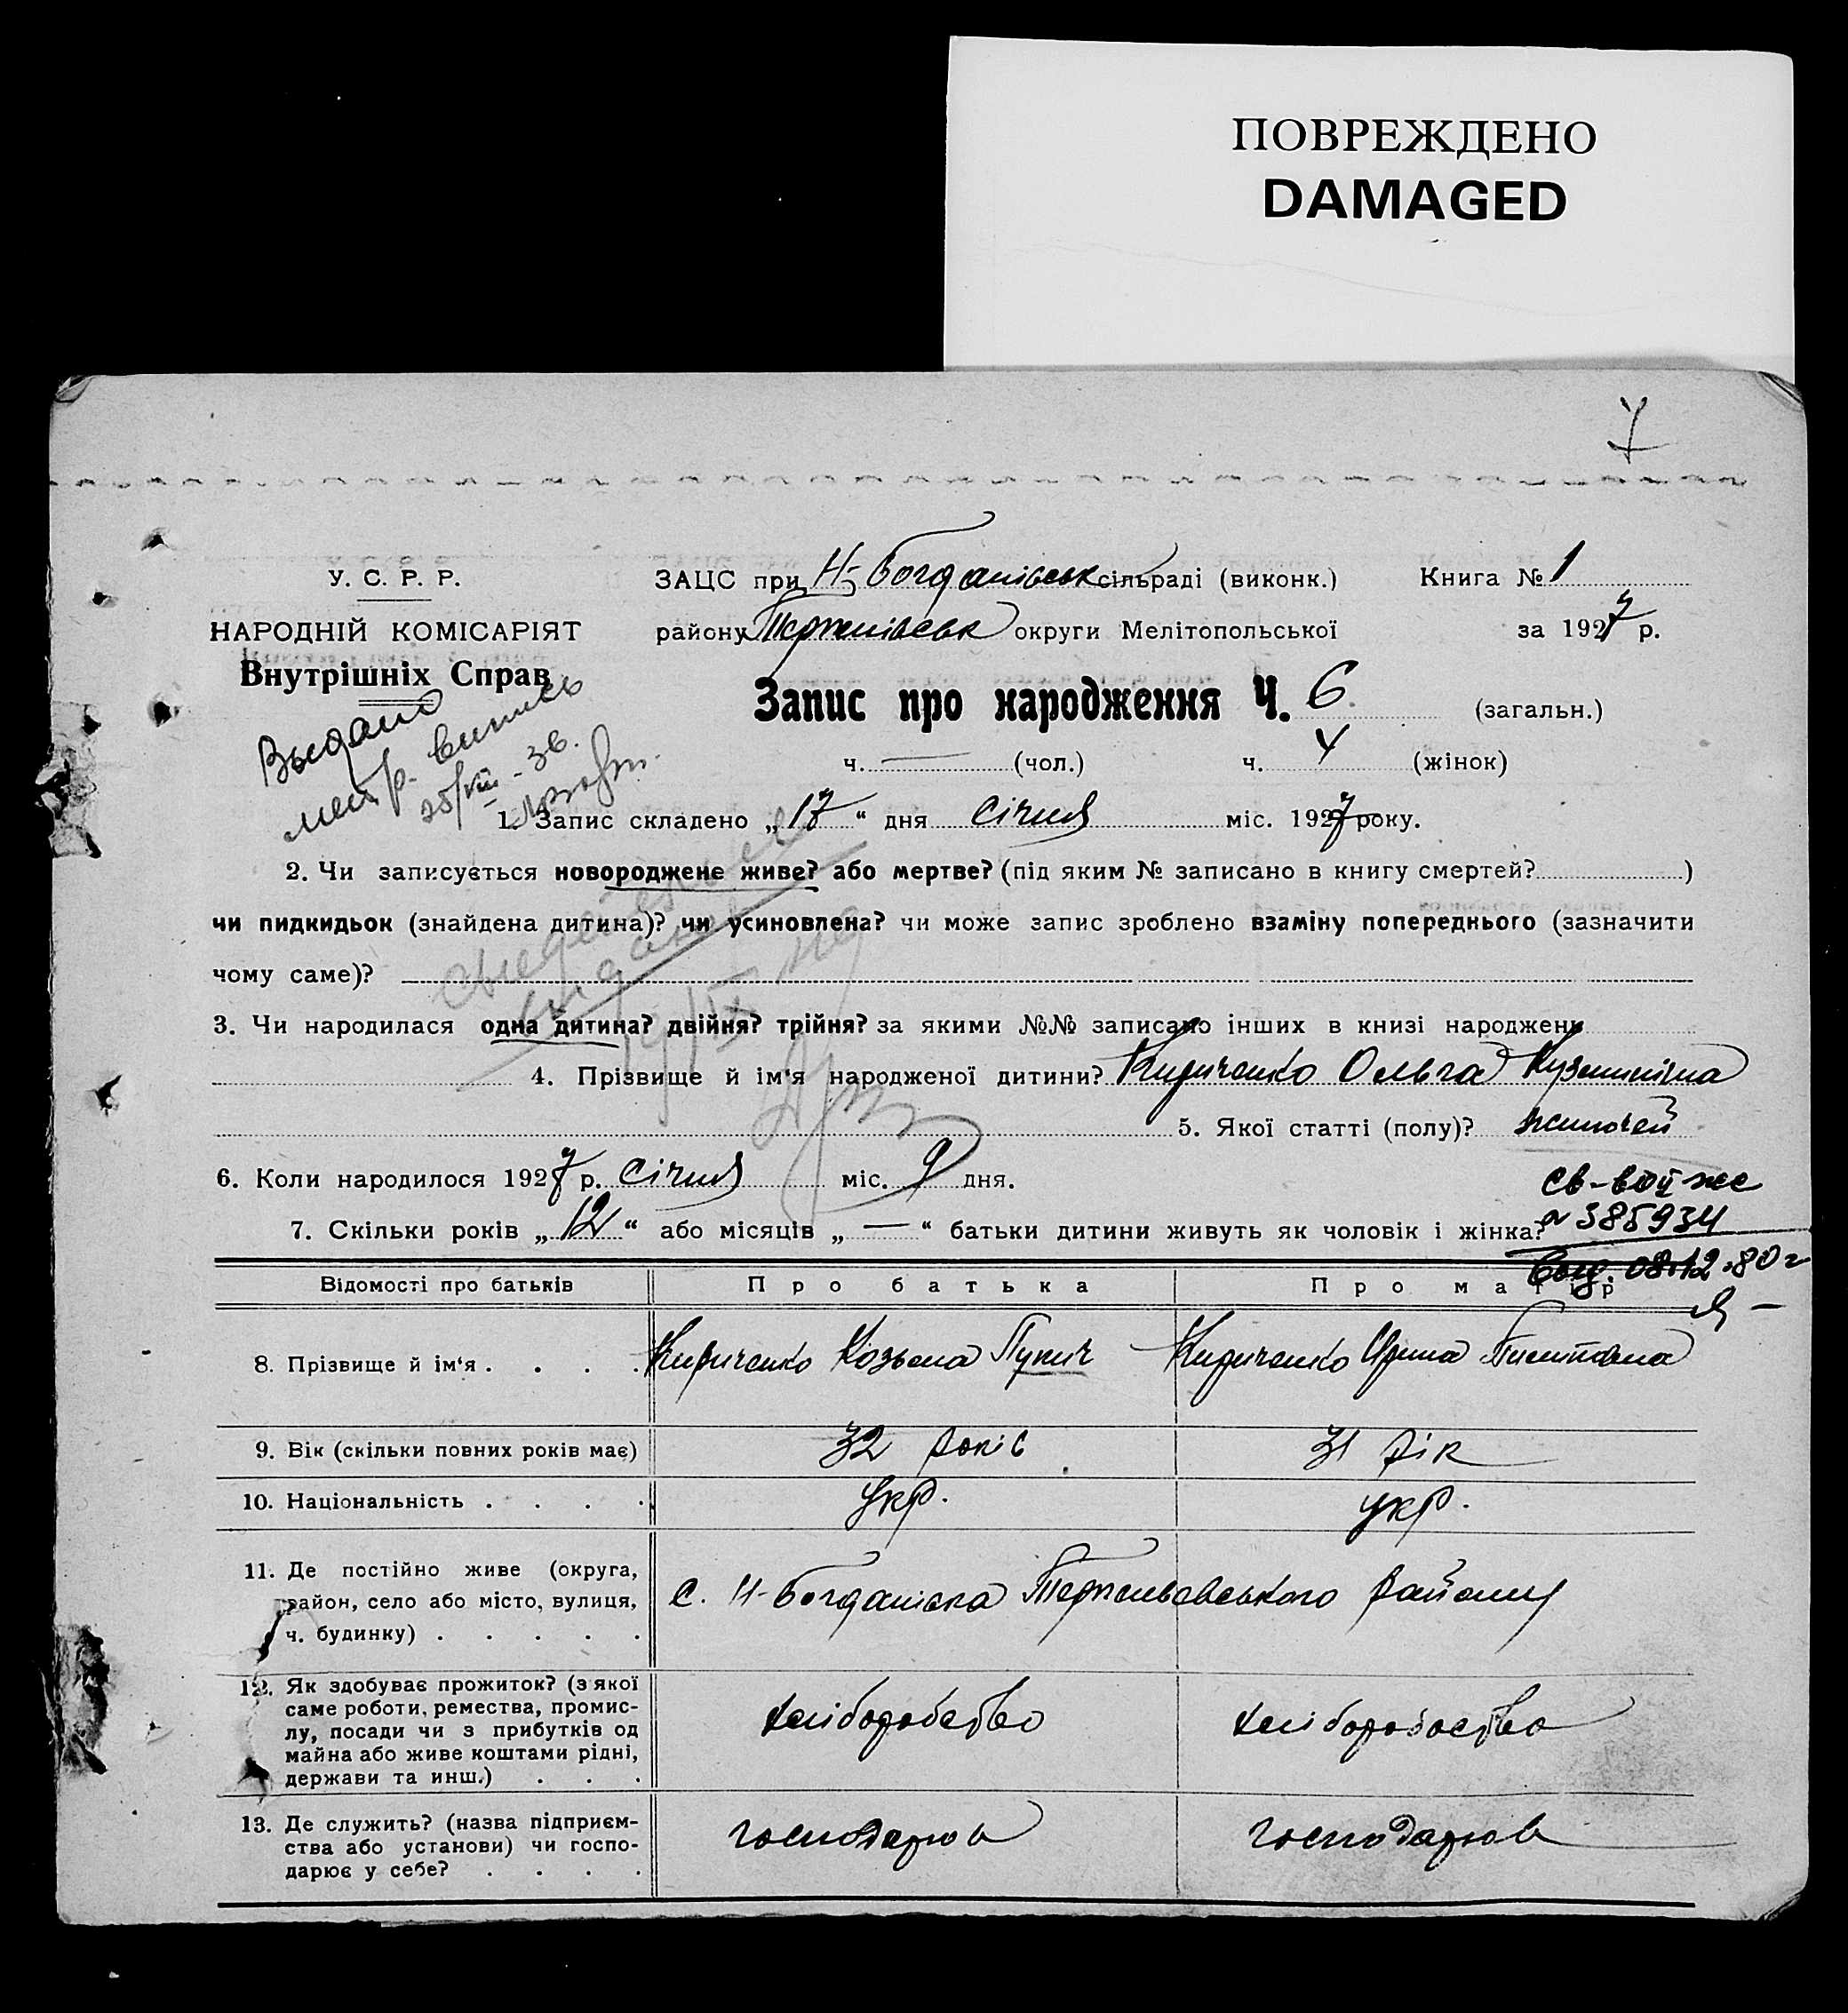 ПОВРЕЖДЕНО
DAMAGED
У. С. Р. Р.
НАРОДНІЙ КОМІСАРІЯТ
Внутрішніх Справ
ЗАЦС при Н-Богданівськ сільраді (виконк.)
району округи Мелітопольської
Книга № 1
за 1927 р.
Выдано
метр. выпись
Запис про народження Ч. 6 (загальн.)
ч. — (чол.) ч. 4 (жінок)
1. Запис складено „17“ дня січня міс. 1927 року.
2. Чи записується новороджене живе? або мертве? (під яким № записано в книгу смертей? )
чи пидкидьок (знайдена дитина)? чи усиновлена? чи може запис зроблено взаміну попереднього (зазначити
чому саме)?
3. Чи народилася одна дитина? двійня? трійня? за якими №№ записано інших в книзі народжень
4. Прізвище й ім‘я народженої дитини? Кириченко Ольга Кузьминічна
5. Якої статті (полу)? жиночей
6. Коли народилося 1927 р. січня міс. 9 дня.
7. Скільки років „12“ або місяців „—“ батьки дитини живуть як чоловік і жінка?
св-во
№ 385934
выд. 08.12.80 г
Відомості про батьків Про батька Про матір
8. Прізвище й ім‘я . . . . Кириченко Козьма Кириченко Ирина
9. Вік (скільки повних років має) 32 років 31 рік
10. Національність . . . . укр. укр.
11. Де постійно живе (округа,
район, село або місто, вулиця,
ч. будинку) . . . . .
с. Н-Богданівка району
12. Як здобуває прожиток? (з якої
саме роботи, ремества, промис-
лу, посади чи з прибутків од
майна або живе коштами рідні,
держави та инш.) . . .
хліборобство хлiборобоство
13. Де служить? (назва підприєм-
ства або установи) чи госпо-
дарює у себе? . . . .